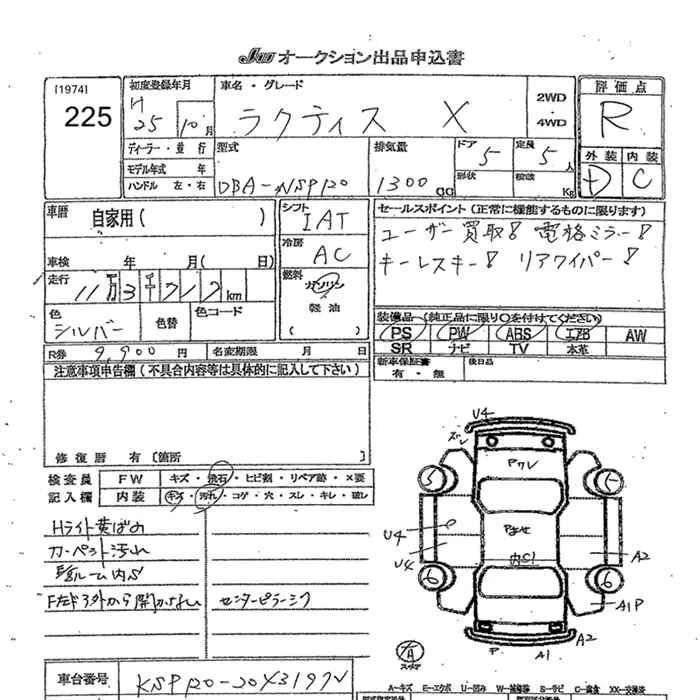 JU オークション出品申込書
[1974]
225
初度登録年月 車名・グレード 評価点
H 25 10月 ラクティス X 2WD・4WD R
外装 内装
D C
ディーラー・並行 型式 排気量 ドア 定員
モデル年式 年 5 5人
ハンドル 左・右 DBA-NSP120 1300cc 形状 積載 Kg
車歴 自家用( ) シフト IAT セールスポイント(正常に機能するものに限ります)
冷房 AC ユーザー買取! 電格ミラー!
車検 年 月(日) キーレスキー! リアワイパー!
走行 11万3千717km 燃料 ガソリン
軽油
( )
色 シルバー 色替 色コード 装備品(純正品に限り○を付けてください)
PS PW ABS エアB AW
SR ナビ TV 本革
R券 9,900円 名変期限 月 日 新車保証書 後日品
有・無
注意事項申告欄(不具合内容等は具体的に記入して下さい)
修復歴 有〔箇所 〕
検査員 FW キズ・飛石・ヒビ割・リペア跡・×要
記入欄 内装 キズ・汚れ・コゲ・穴・スレ・キレ・破レ
Hライト黄ばみ
カーペット汚れ
ルーム内S
F左ドア外から開かない センターピラーミク
U4
ズレ
Pワレ
5
U4
U4
内S1
A2
6 6
A1P
A
スペア
P A1 A2
車台番号
A-キズ E-エクボ U-凹み W-補修跡 S-サビ C-腐食 XX-交換済